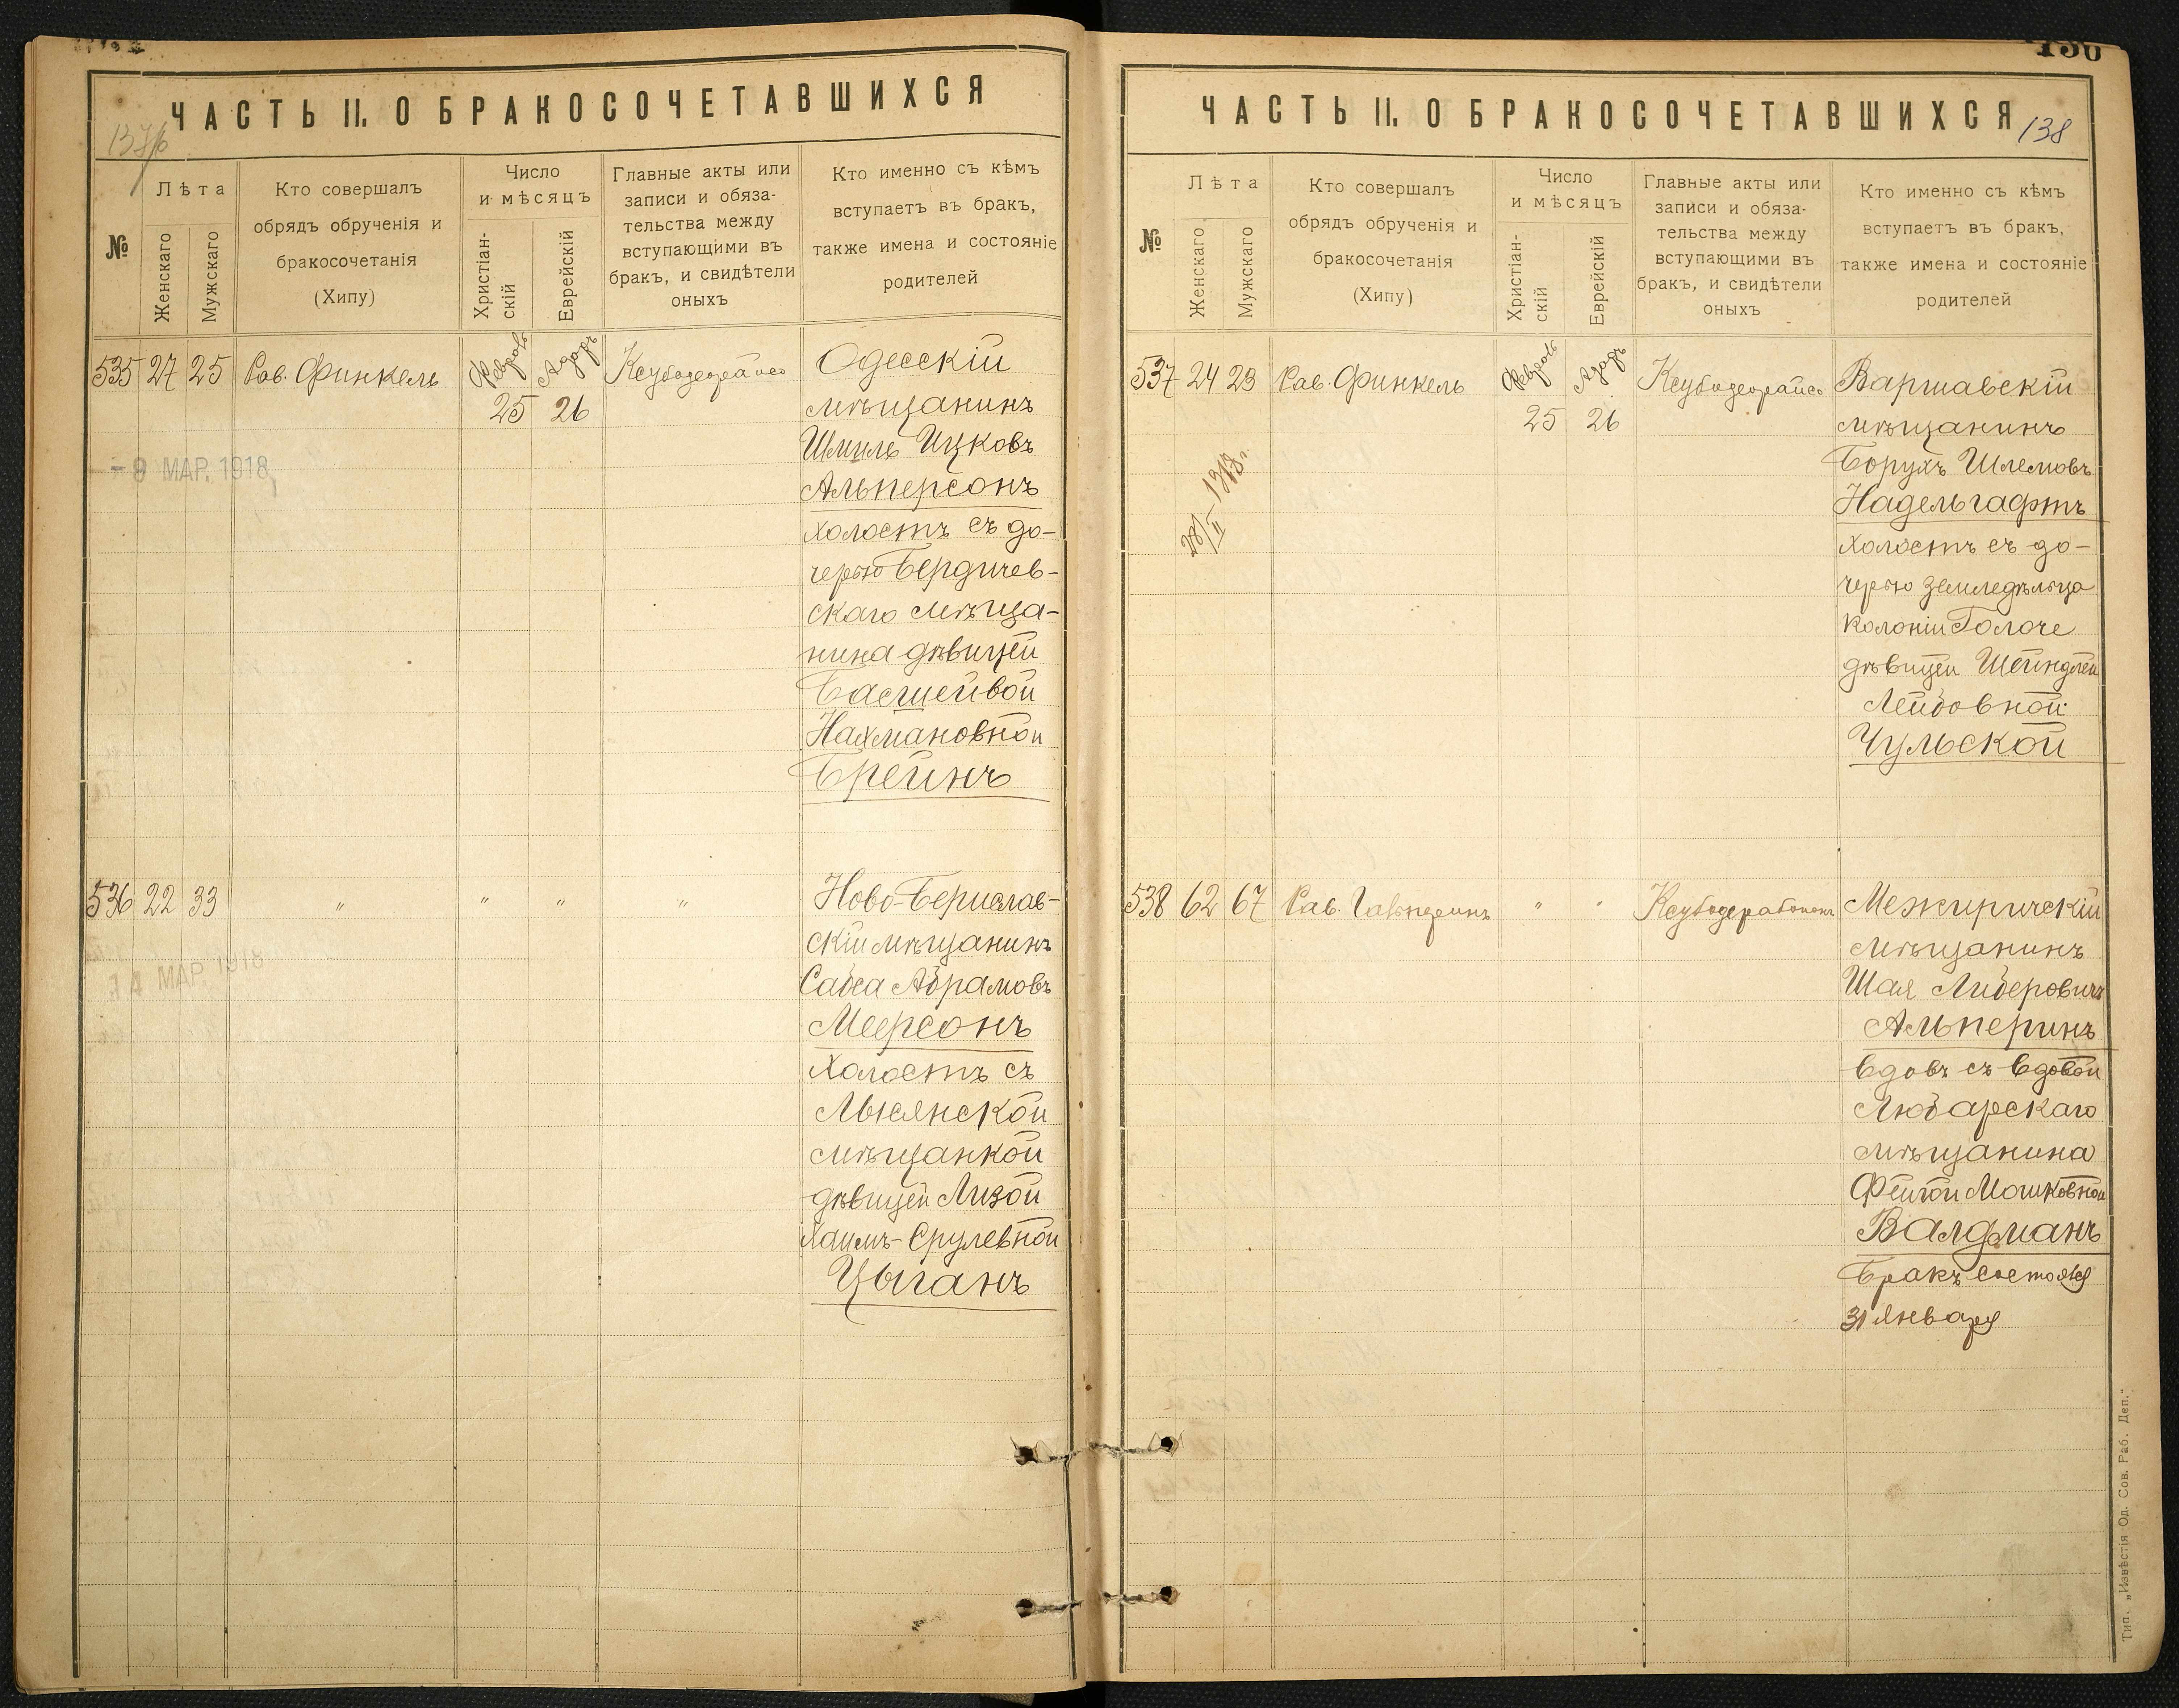 ЧАСТЬ II. О БРАКОСОЧЕТАВШИХСЯ
№
Лѣта
Женскаго
Мужскаго
Кто совершалъ
обрядъ обрученія и
бракосочетанія
(Хипу)
Число
и мѣсяцъ
Христіан-
скій
Еврейскій
Главные акты или
записи и обяза-
тельства между
вступающими въ
бракъ, и свидѣтели
оныхъ
Кто именно съ кѣмъ
вступаетъ въ бракъ,
также имена и состояніе
родителей
535 27 25 Рав. Финкель
25 26
- 9 МАР. 1918
Одесскій
мѣщанинъ
Шмиль Ицковъ
Альперсонъ
холостъ съ до-
черью Бердичев-
скаго мѣща-
нина дѣвицей
Басшейвой
Нахмановной
Брейнъ
536 22 33 " " " "
14 МАР. 1918
Ново-Берислав-
скій мѣщанинъ
Сабса Абрамовъ
Меерсонъ
холостъ съ
Лысянской
мѣщанкой
дѣвицей Лизой
Хаимъ-Срулевной
Цыганъ
ЧАСТЬ II. О БРАКОСОЧЕТАВШИХСЯ
138
№
Лѣта
Женскаго
Мужскаго
Кто совершалъ
обрядъ обрученія и
бракосочетанія
(Хипу)
Число
и мѣсяцъ
Христіан-
скій
Еврейскій
Главные акты или
записи и обяза-
тельства между
вступающими въ
бракъ, и свидѣтели
оныхъ
Кто именно съ кѣмъ
вступаетъ въ бракъ,
также имена и состояніе
родителей
537 24 23 Рав. Финкель
25 26
Варшавскій
мѣщанинъ
Борухъ Шлемовъ
Надельгафтъ
холостъ съ до-
черью земледѣльца
колоніи Голоче
дѣвицей Шейндлей
Лейбовной
Чульской
538 62 67 Рав. " "
Межиричскій
мѣщанинъ
Шая Либеровичъ
Альперинъ
вдовъ съ вдовой
Любарскаго
мѣщанина
Фейгой Мошковной
Валдманъ
Бракъ состоялся
31 Января
Тип. „Извѣстія Од. Сов. Раб. Деп."